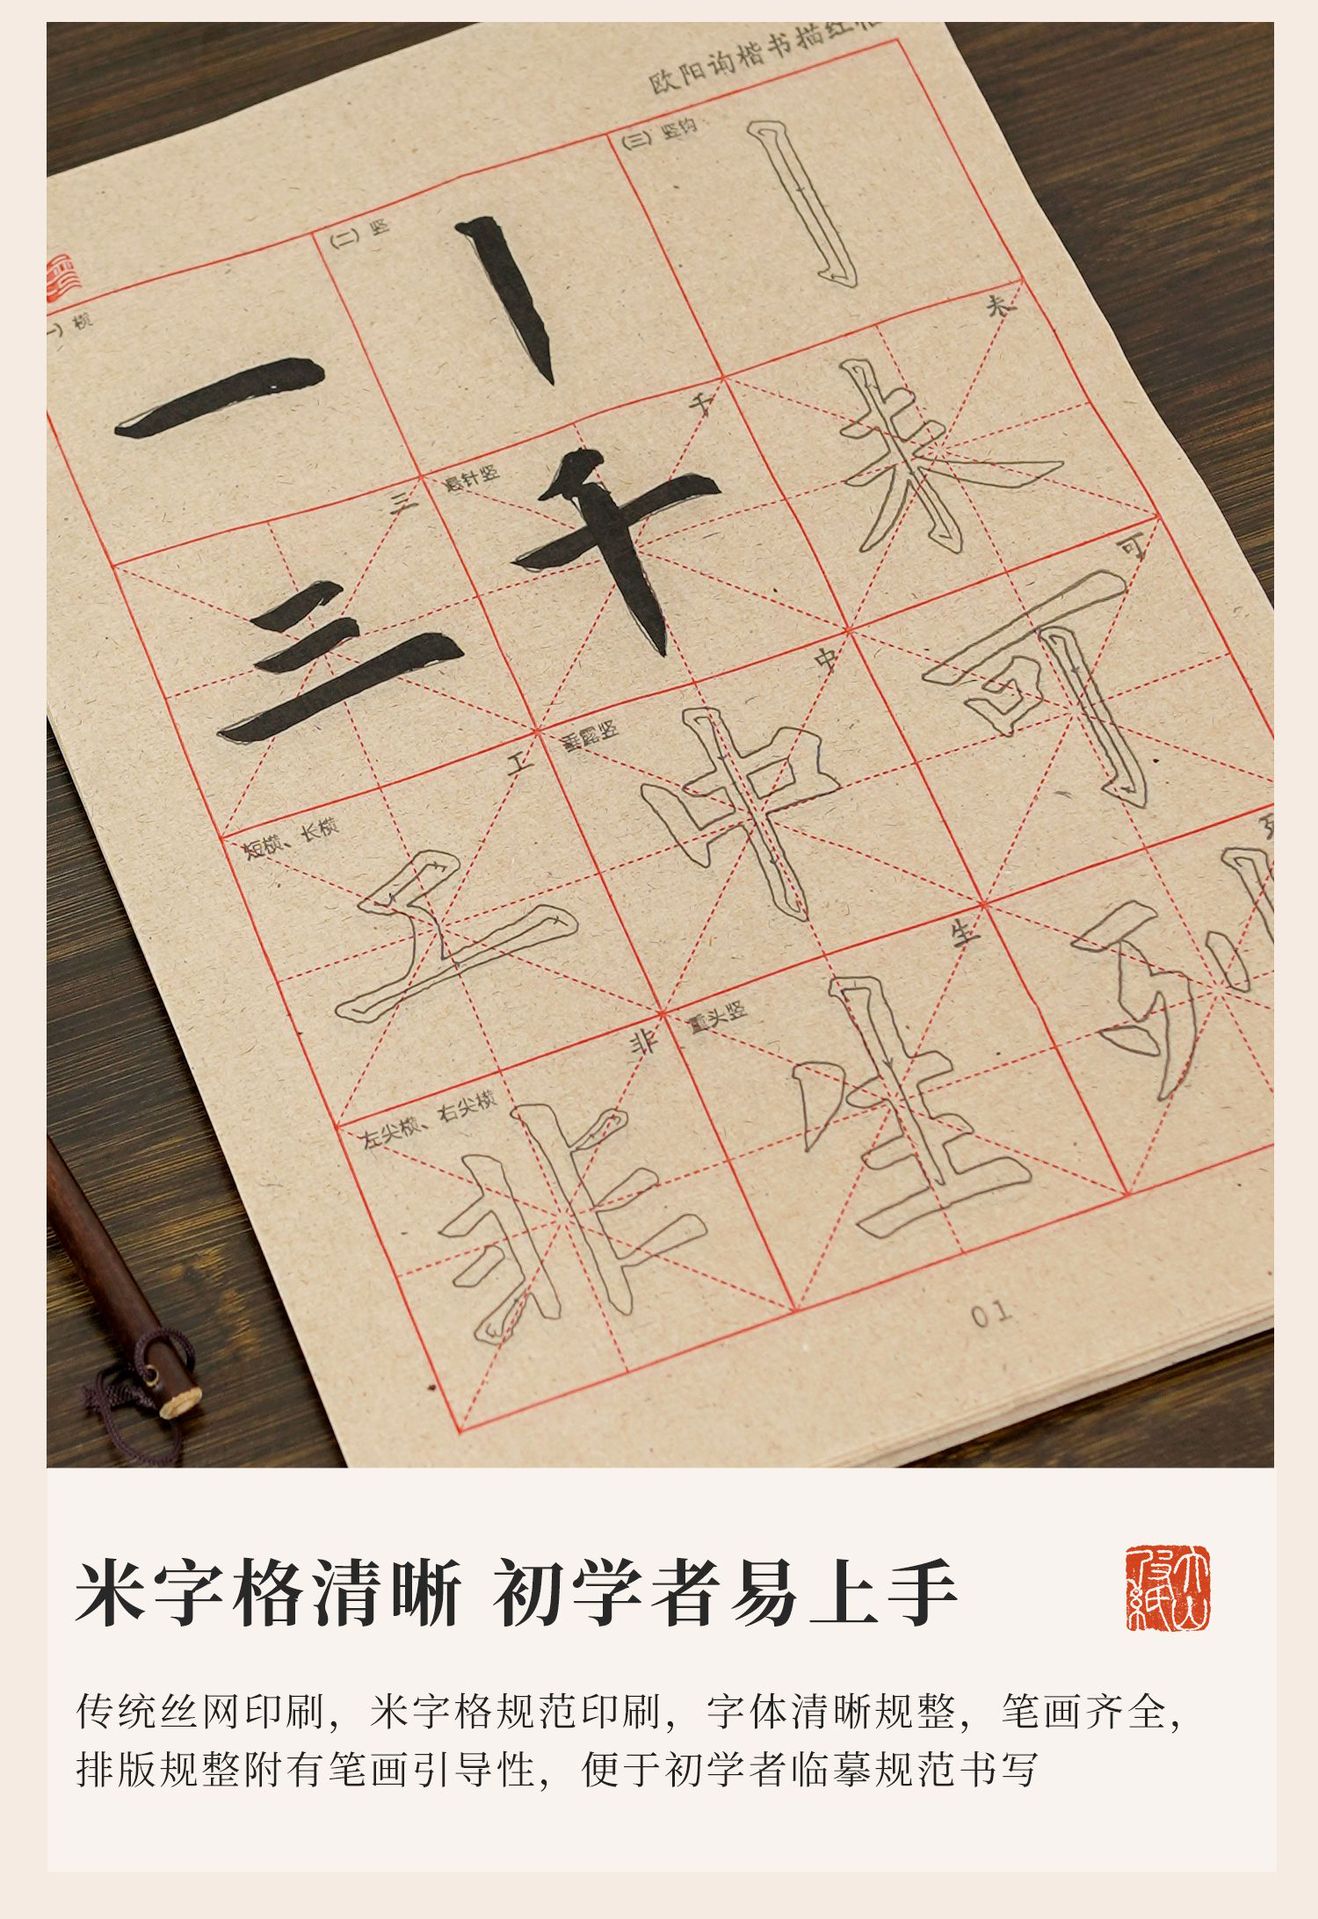 欧阳询楷书描红
(三) 竖钩
(二) 竖
横
一
丨
亅
三
三
悬针竖
千
千
未
未
短横、长横
工
工
垂露竖
中
中
可
可
左尖横、右尖横
非
非
重头竖
生
生
列
01
米字格清晰 初学者易上手
传统丝网印刷，米字格规范印刷，字体清晰规整，笔画齐全，
排版规整附有笔画引导性，便于初学者临摹规范书写